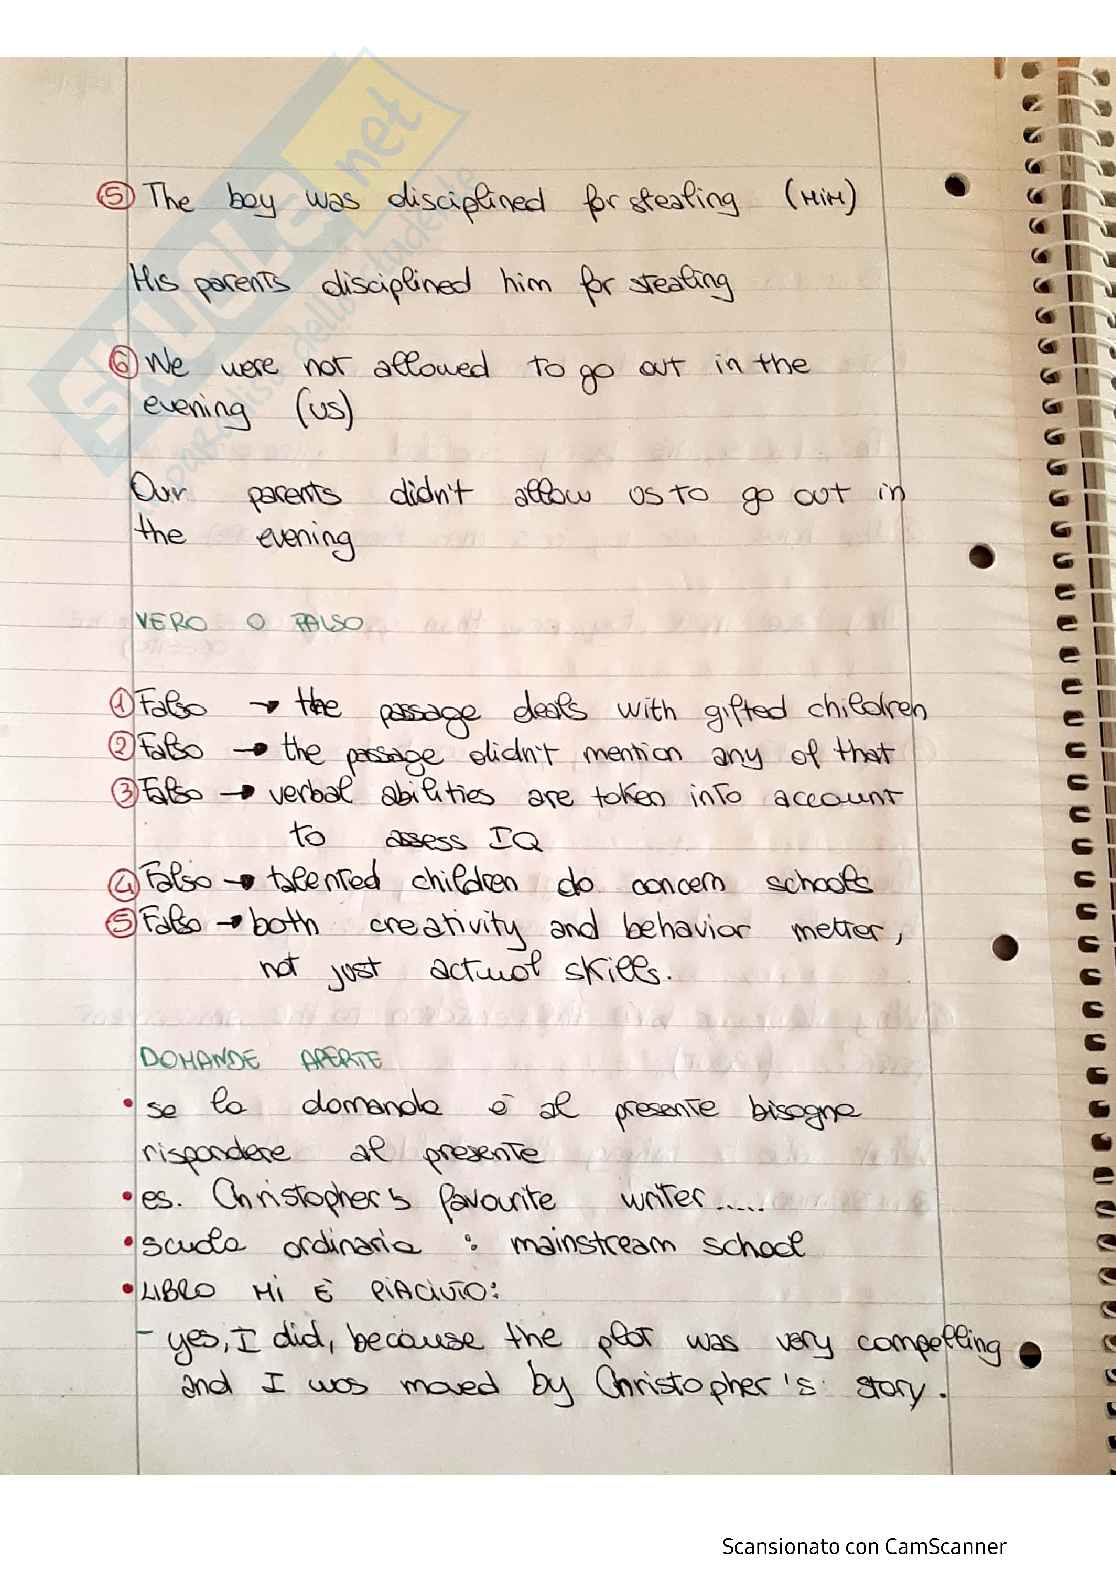 SKUOLA.net
⑤ The boy was disciplined for stealing (HIM)
His parents disciplined him for stealing
⑥ We were not allowed to go out in the
evening (US)
Our parents didn't allow us to go out in
the evening
VERO O FALSO
① Falso → the passage deals with gifted children
② Falso → the passage didn't mention any of that
③ Falso → verbal abilities are taken into account
to assess IQ
④ Falso → talented children do concern schools
⑤ Falso → both creativity and behavior metter,
not just actual skills.
DOMANDE APERTE
• se la domanda è al presente bisogna
rispondere al presente
• es. Christopher's favourite writer.....
• scuola ordinaria : mainstream school
• LIBRO MI È PIACIUTO:
- yes, I did, because the plot was very compelling
and I was moved by Christopher's story.
Scansionato con CamScanner